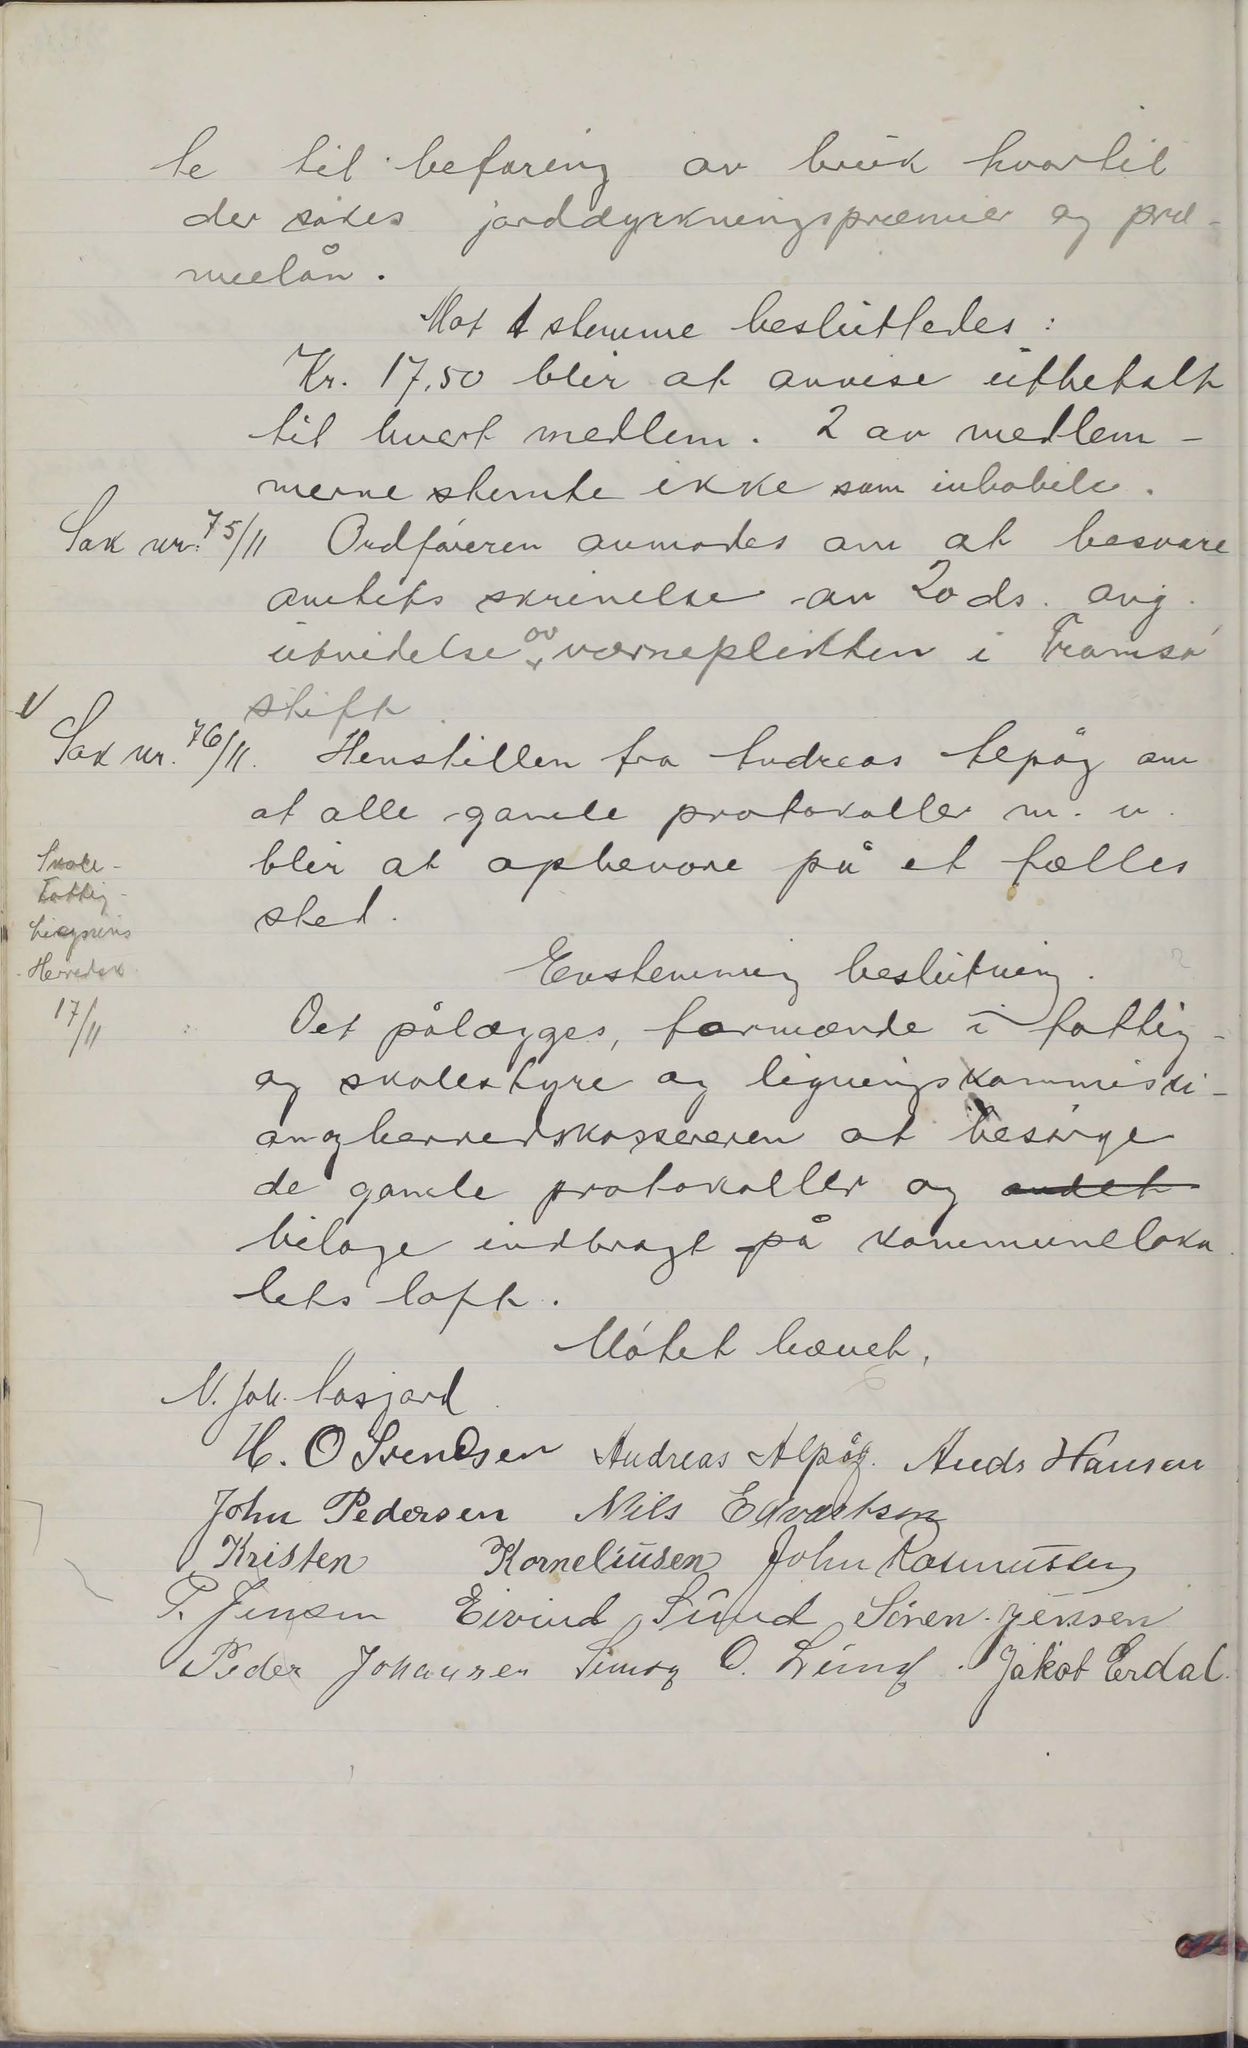 te til befaring av bruk hvortil
der søkes jorddyrkningspræmier og præ-
mielån.
Mot 1 stemme besluttedes:
Kr. 17.50 blir at anvise utbetalt
til hvert medlem. 2 av medlem-
merne stemte ikke som inhabile.
Sak nr. 75/11 Ordføreren anmodes om at besvare
amtets skrivelse av 20 ds. ang.
utvidelse av værneplikten i Tromsø
stift
V
Sak nr. 76/11. Henstillen fra Andreas Alpøg om
at alle gamle protokoller m. v.
blir at opbevare på et fælles
sted.
Skole-
Fattig-
Lignins
Herredsk
17/11
Enstemmig beslutning.
Det pålægges, formænde i fattig-
og skolestyre og ligningskommissi-
on og herredskassereren at besørge
de gamle protokoller og andet
bilage indbragt på kommuneloka
lets loft.
Møtet hævet.
N. Joh. Sosjord
H. O Svendsen Andreas Alpøg. Ands Hansen
John Pedersen Nils Edvartsen
Kristen Korneliusen John Rasmussen
P. Jensen Eivind Sund Sören Jenssen
Peder Johansen Simon O. Lund. Jakob Erdal.